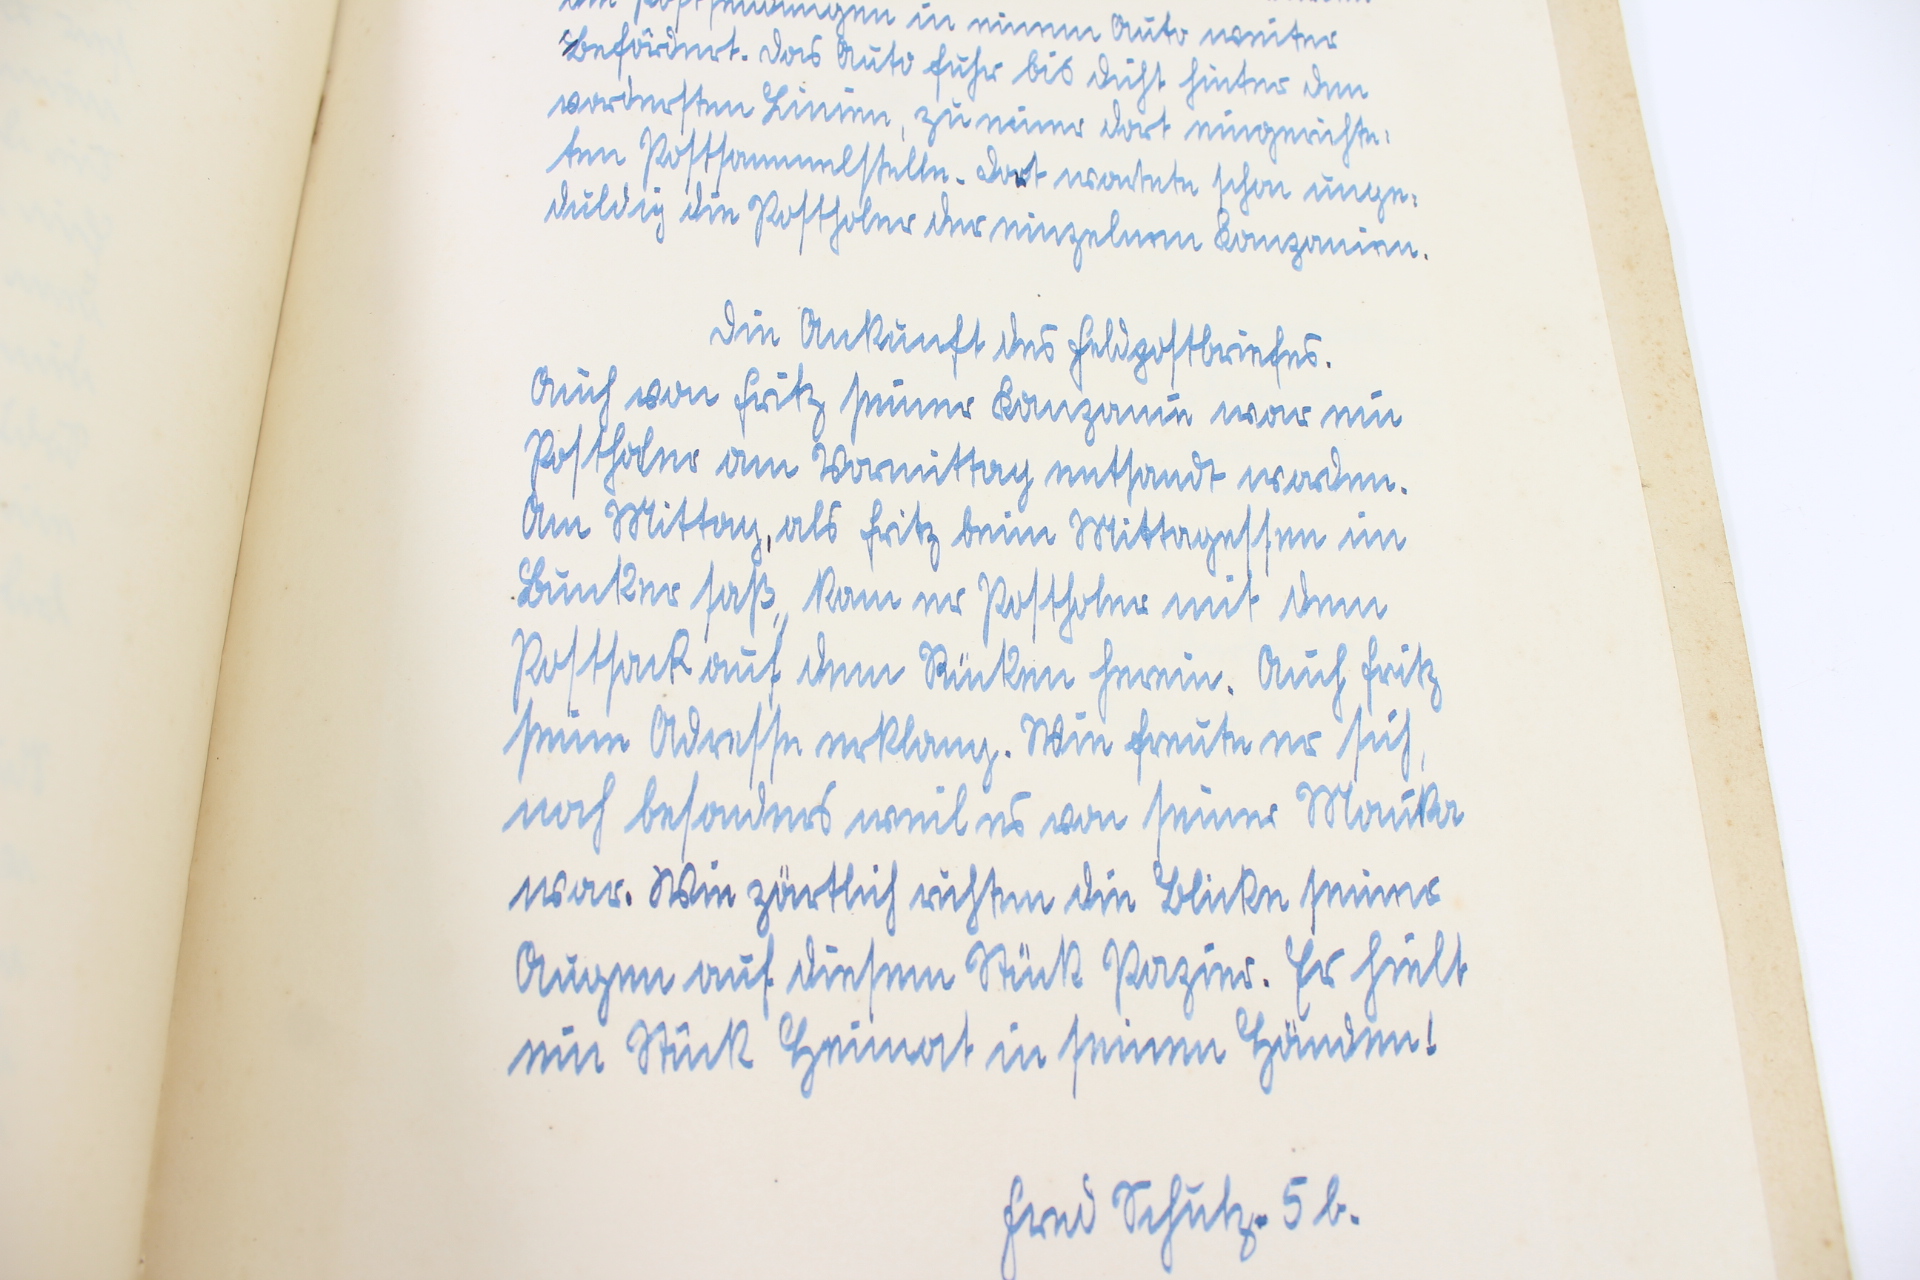 die Postsendungen in einem Auto weiter
befördert. Das Auto fuhr bis dicht hinter den
vordersten Linien, zu einer dort eingerichte=
ten Postsammelstelle. Dort wartete schon unge=
duldig die Postholer der einzelnen Kompanien.
Die Ankunft des Feldpostbriefes.
Auch von Fritz seiner Kompanie war ein
Postholer am Vormittag entsandt worden.
Am Mittag, als Fritz beim Mittagessen im
Bunker saß, kam er Postholer mit dem
Postsack auf dem Rücken herein. Auch Fritz
seine Adresse erklang. Wie freute er sich,
noch besonders weil es von seiner
war. Wie zärtlich richten die Blicke seiner
Augen auf diesem Stück Papier. Er hielt
ein Stück Heimat in seinen Händen!
Fred Schütz. 5 b.